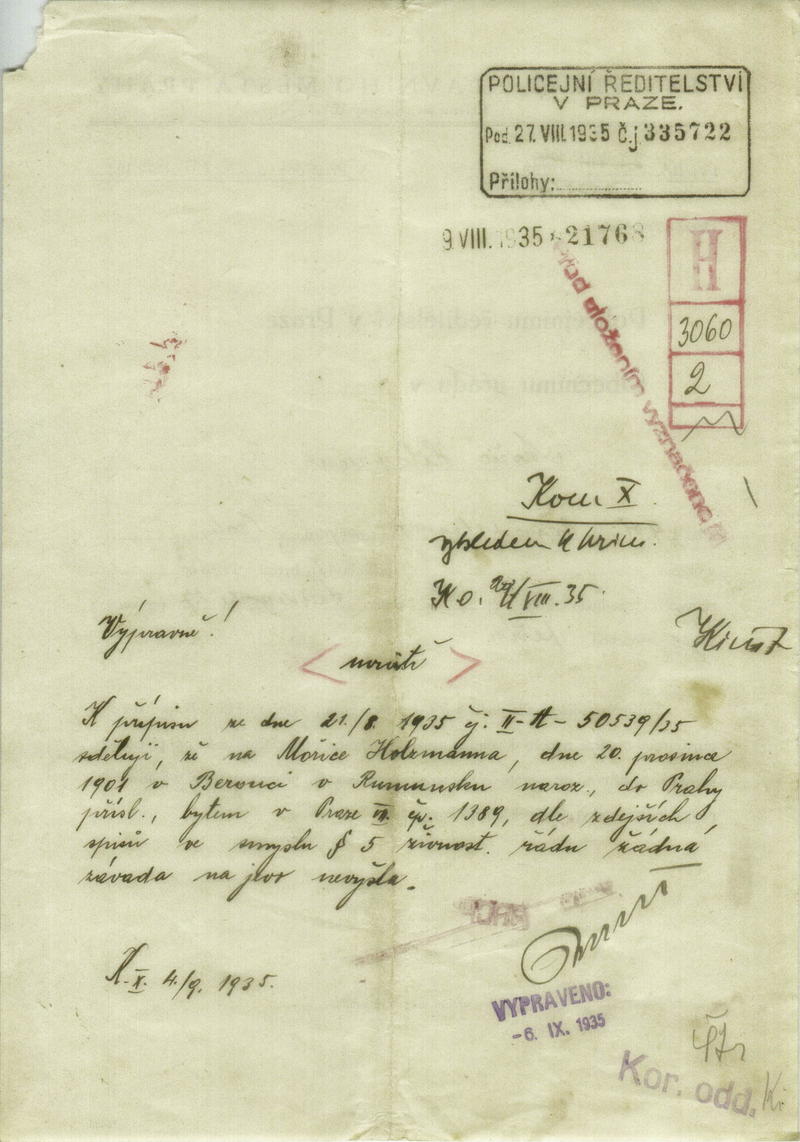 POLICEJNÍ ŘEDITELSTVÍ
V PRAZE.
Pod. 27. VIII. 1935 č.j. 335722
Přílohy:
9. VIII. 1935 21768
H
3060
2
před uložením vyznačeno
Kom X
K o. VIII. 35.
Výpravně!
K přípisu ze dne 21./8. 1935 čj. II-H-50539/35
sděluji, že na Mořice Holzmanna, dne 20. prosince
1901 v Berouci v Rumunsku naroz., do Prahy
přísl., bytem v Praze VII. čp. 1389, dle zdejších
spisů ve smyslu § 5 živnost. řádu žádná
závada na jevo nevyšla.
K. X. 4./9. 1935.
VYPRAVENO:
-6. IX. 1935
Kor. odd.